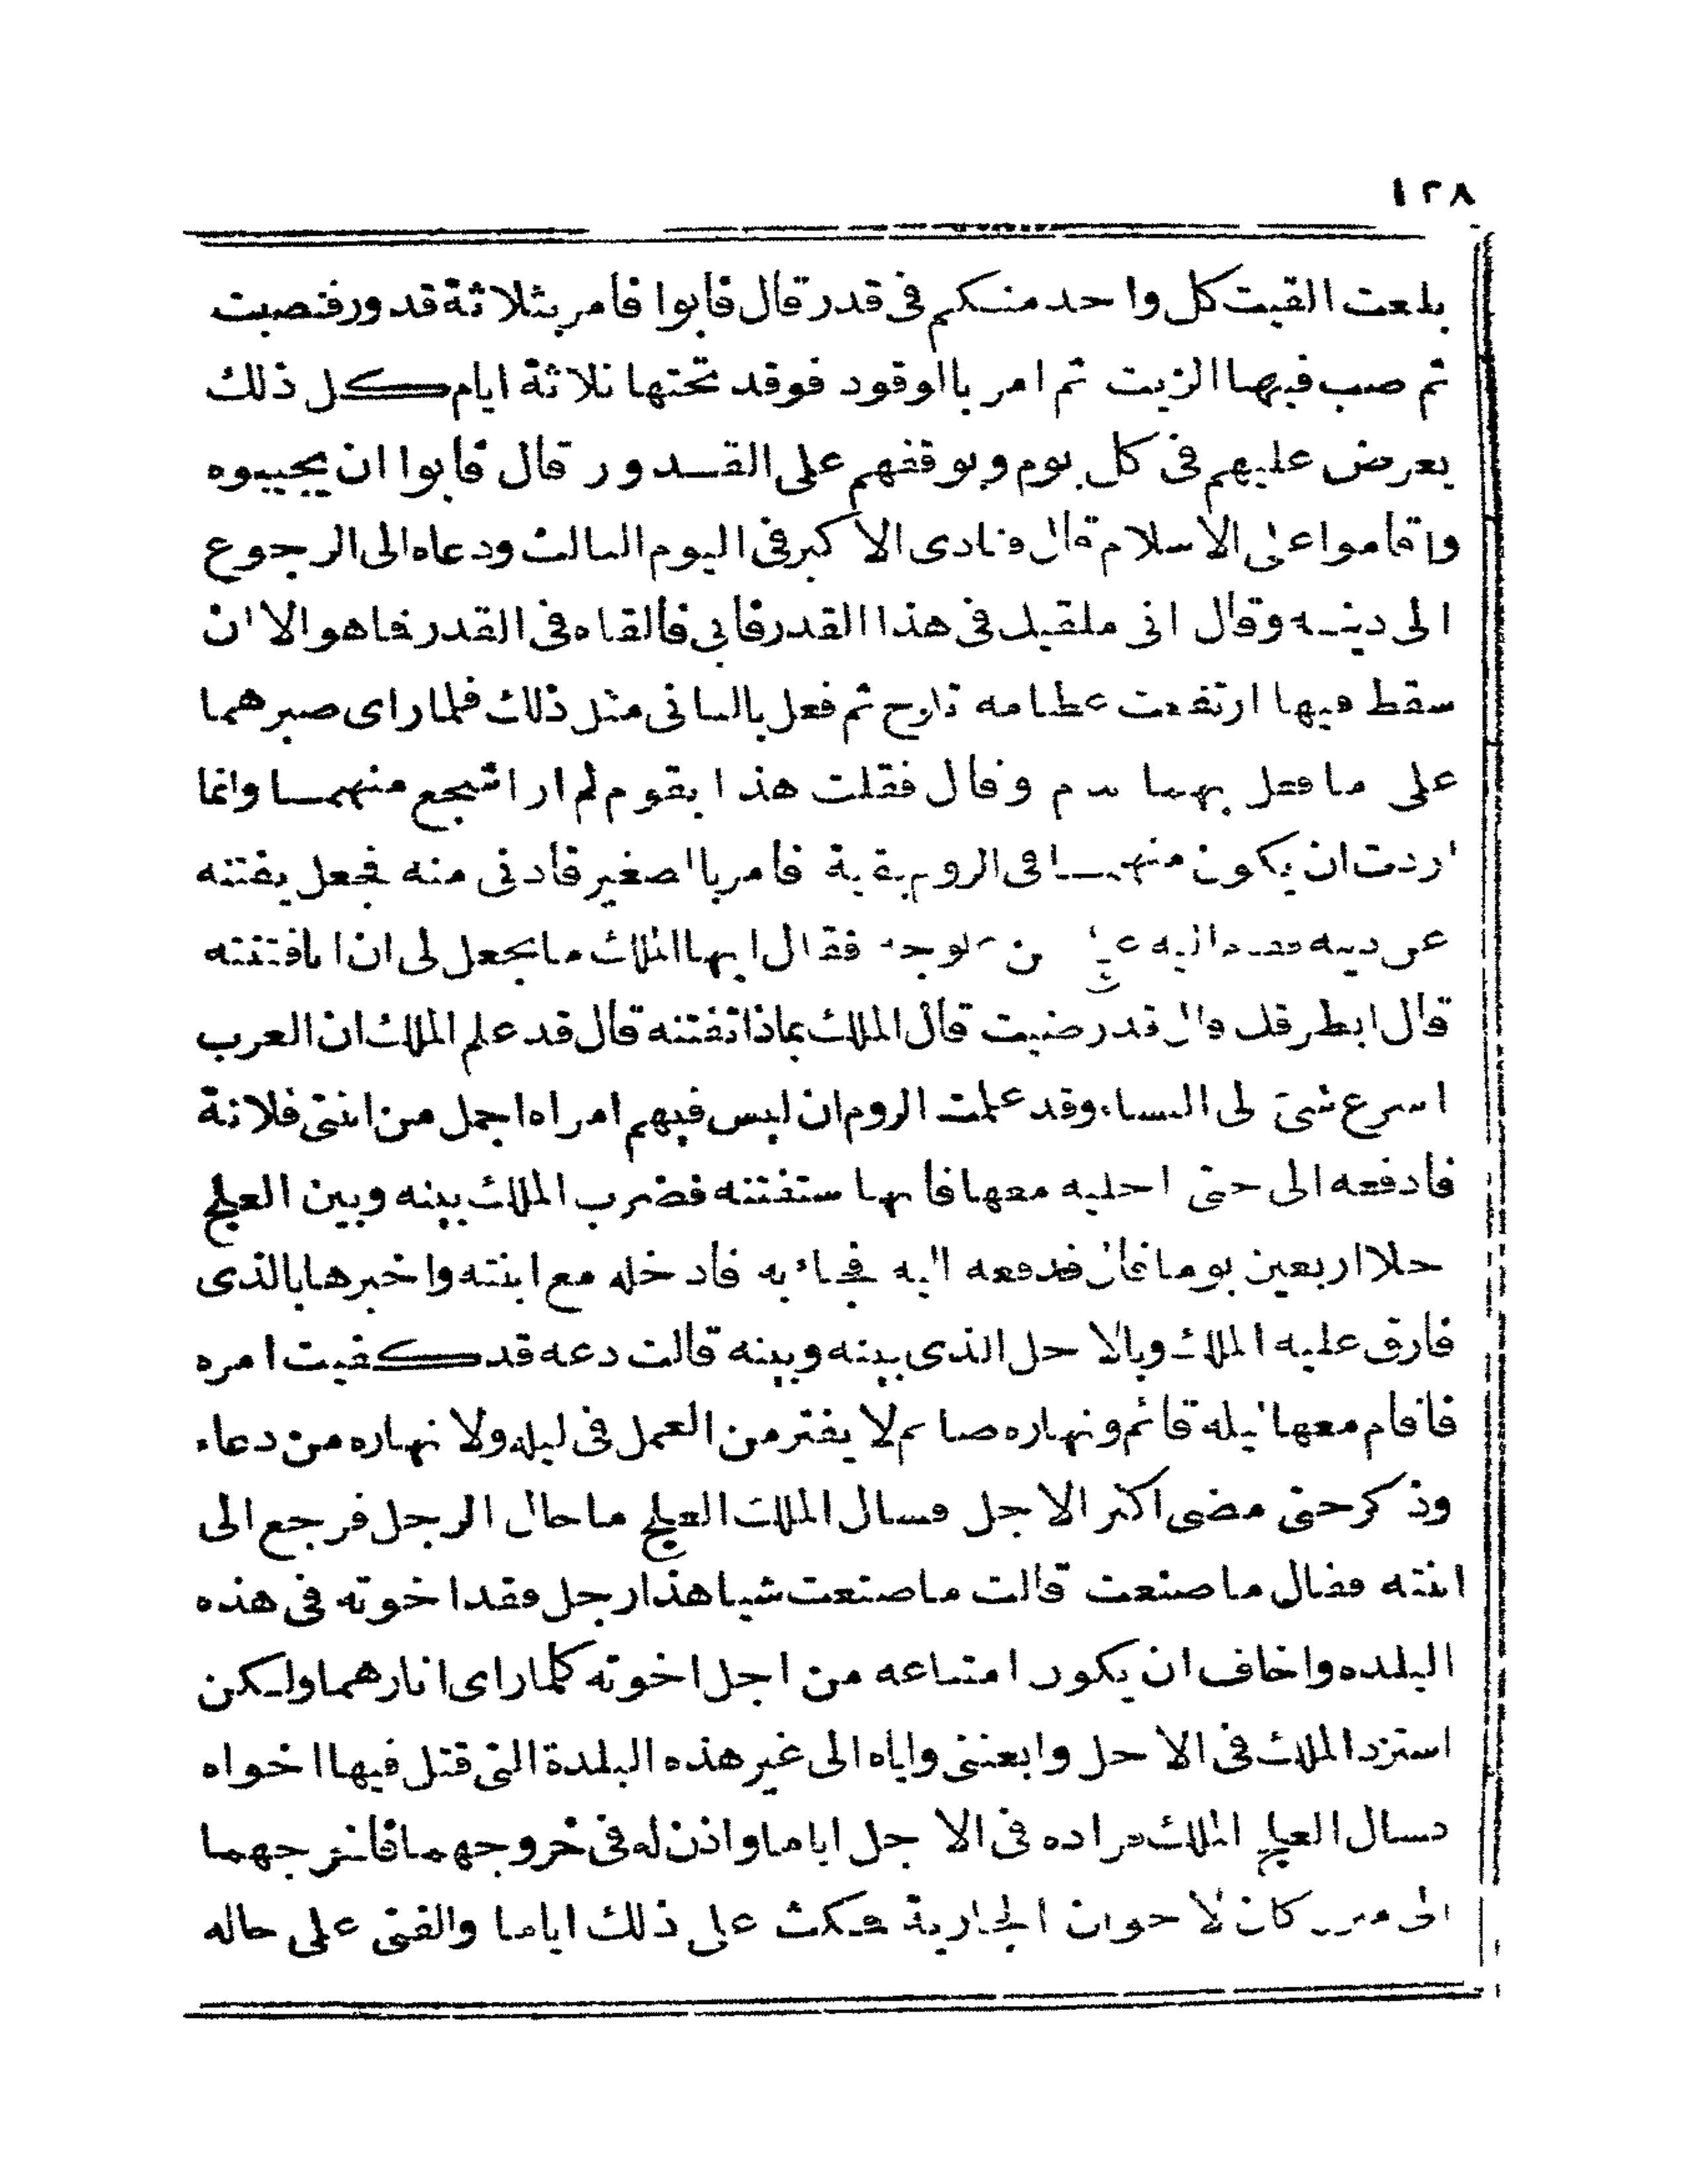 ١٢٨
بلعت القيت كل واحد منكم فى قدر قال فابوا فامر بثلاثة قدور فنصبت
ثم صب فيها الزيت ثم امر بالوقود فوقد تحتها ثلاثة ايام كل ذلك
يعرض عليهم فى كل يوم ويوقفهم على القدور قال فابوا ان يجيبوه
واقاموا على الاسلام قال فنادى الاكبر فى اليوم الثالث ودعاه الى الرجوع
الى دينه وقال انى ملقيك فى هذا القدر فابى فالقاه فى القدر فما هو الا ان
سقط فيها ارتفعت عظامه تلوح ثم فعل بالثانى مثل ذلك فلما راى صبرهما
على ما فعل بهما ندم وقال فقلت هذا بقوم لم ار اشجع منهما وانما
اردت ان يكون منهما فى الروم بقية فامر بالصغير فادنى منه فجعل يفتنه
عن دينه فقال ايها الملك ما تجعل لى ان انا فتنته
قال ابطرقك قال قد رضيت قال الملك بماذا تفتنه قال قد علم الملك ان العرب
اسرع شئ الى النساء وقد علمت الروم ان ليس فيهم امراه اجمل من ابنتى فلانة
فادفعه الى حتى اخليه معها فانها ستفتنه فضرب الملك بينه وبين العلج
اجلا اربعين يوما فدفعه اليه فجاء به فادخله مع ابنته واخبرها بالذى
فارق عليه الملك وبالاجل الذى بينه وبينه قالت دعه قد كفيت امره
فاقام معها ليله قائم ونهاره صائم لا يفتر من العمل فى ليله ولا نهاره من دعاء
وذكر حتى مضى اكثر الاجل فسال الملك العلج ما حال الرجل فرجع الى
ابنته فقال ما صنعت قالت ما صنعت شيا هذا رجل فقد اخوته فى هذه
البلده واخاف ان يكون امتناعه من اجل اخوته كلما راى اثارهما ولكن
استزد الملك فى الاجل وابعثنى واياه الى غير هذه البلدة التى قتل فيها اخواه
فسال العلج الملك فزاده فى الاجل اياما واذن له فى خروجهما فاخرجهما
الى كان لاخوان الجارية فمكث على ذلك اياما والفتى على حاله